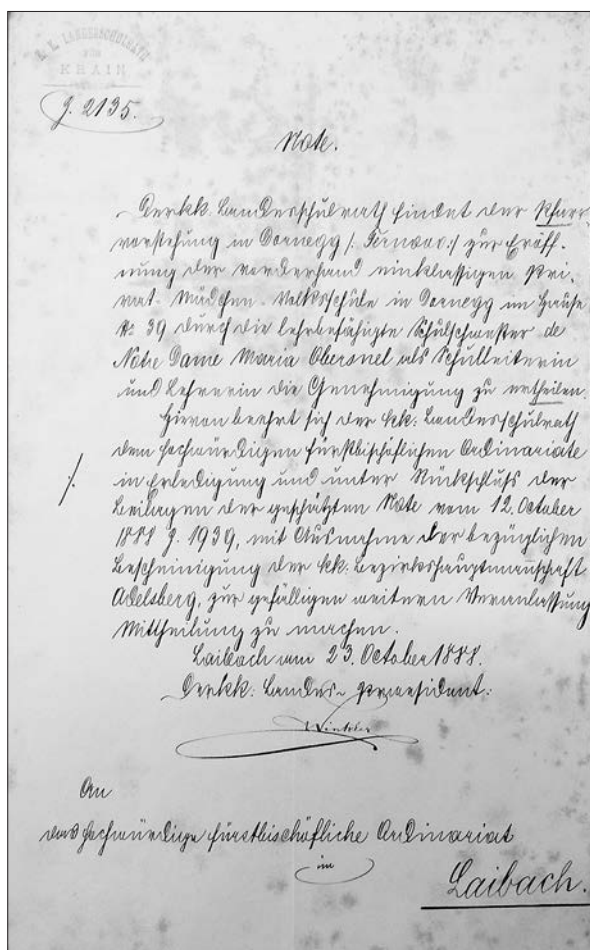 K. K. LANDESSCHULRATH
FÜR
KRAIN
Z. 2135.
Note.
Der kk. Landesschulrath findet der Pfarr-
vorstehung in Dornegg /: Ternovo :/ zur Eröff-
nung der vorderhand einklassigen Pri-
vat-Mädchen-Volksschule in Dornegg im Hause
No 39 durch die lehrbefähigte Schulschwester de
Notre Dame Maria Obersnel als Schulleiterin
und Lehrerin die Genehmigung zu ertheilen.
Hievon beehrt sich der kk. Landesschulrath
dem hochwürdigen fürstbischöflichen Ordinariate
in Erledigung und unter Rückschluß der
./.
Beilagen der geschätzten Note vom 12. October
1888 Z. 1939, mit Ausnahme der bezüglichen
Bescheinigung der kk. Bezirkshauptmannschaft
Adelsberg, zur gefälligen weitern Veranlassung
Mittheilung zu machen.
Laibach am 23. October 1888.
Der kk. Landes-Praesident:
Winkler
An
das hochwürdige fürstbischöfliche Ordinariat
in
Laibach.